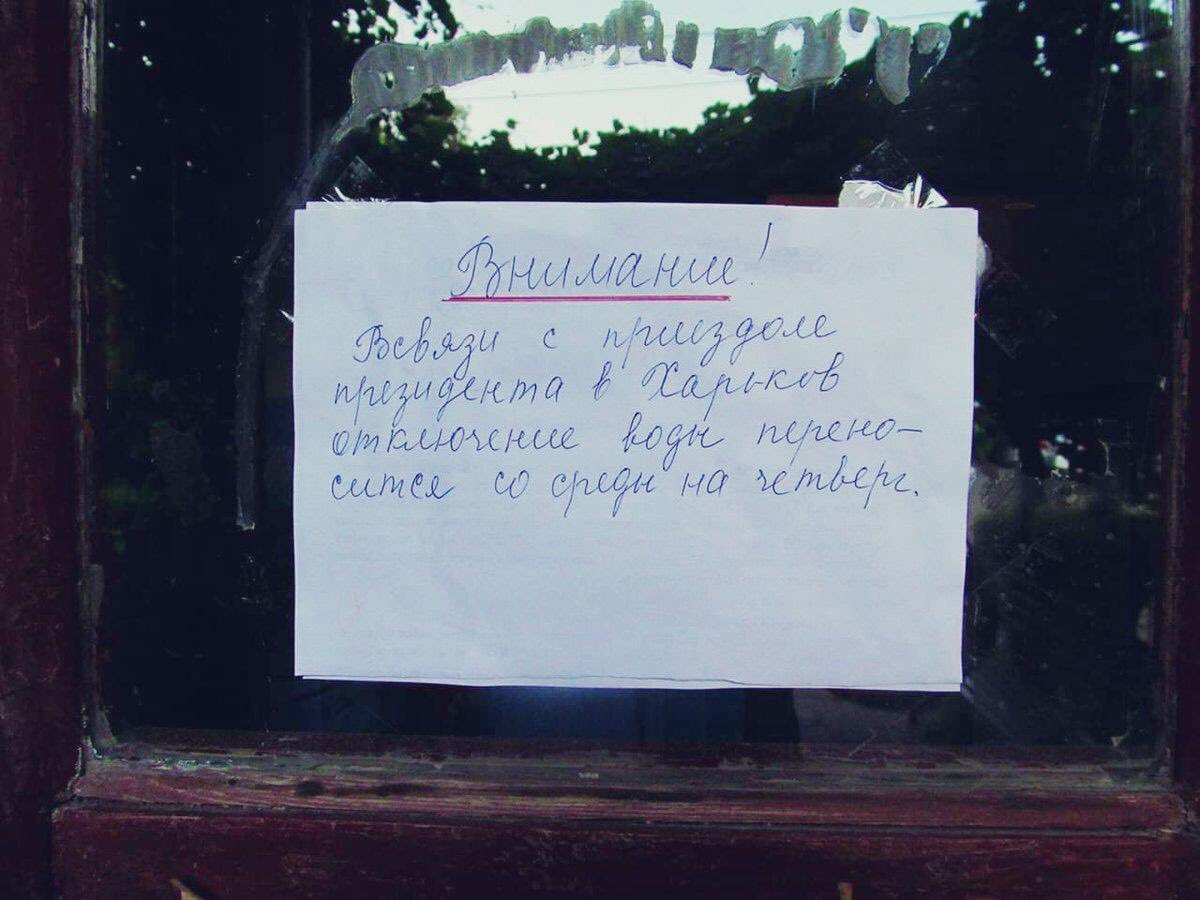 Внимание!
Всвязи с приездом
президента в Харьков
отключение воды перено-
сится со среды на четверг.